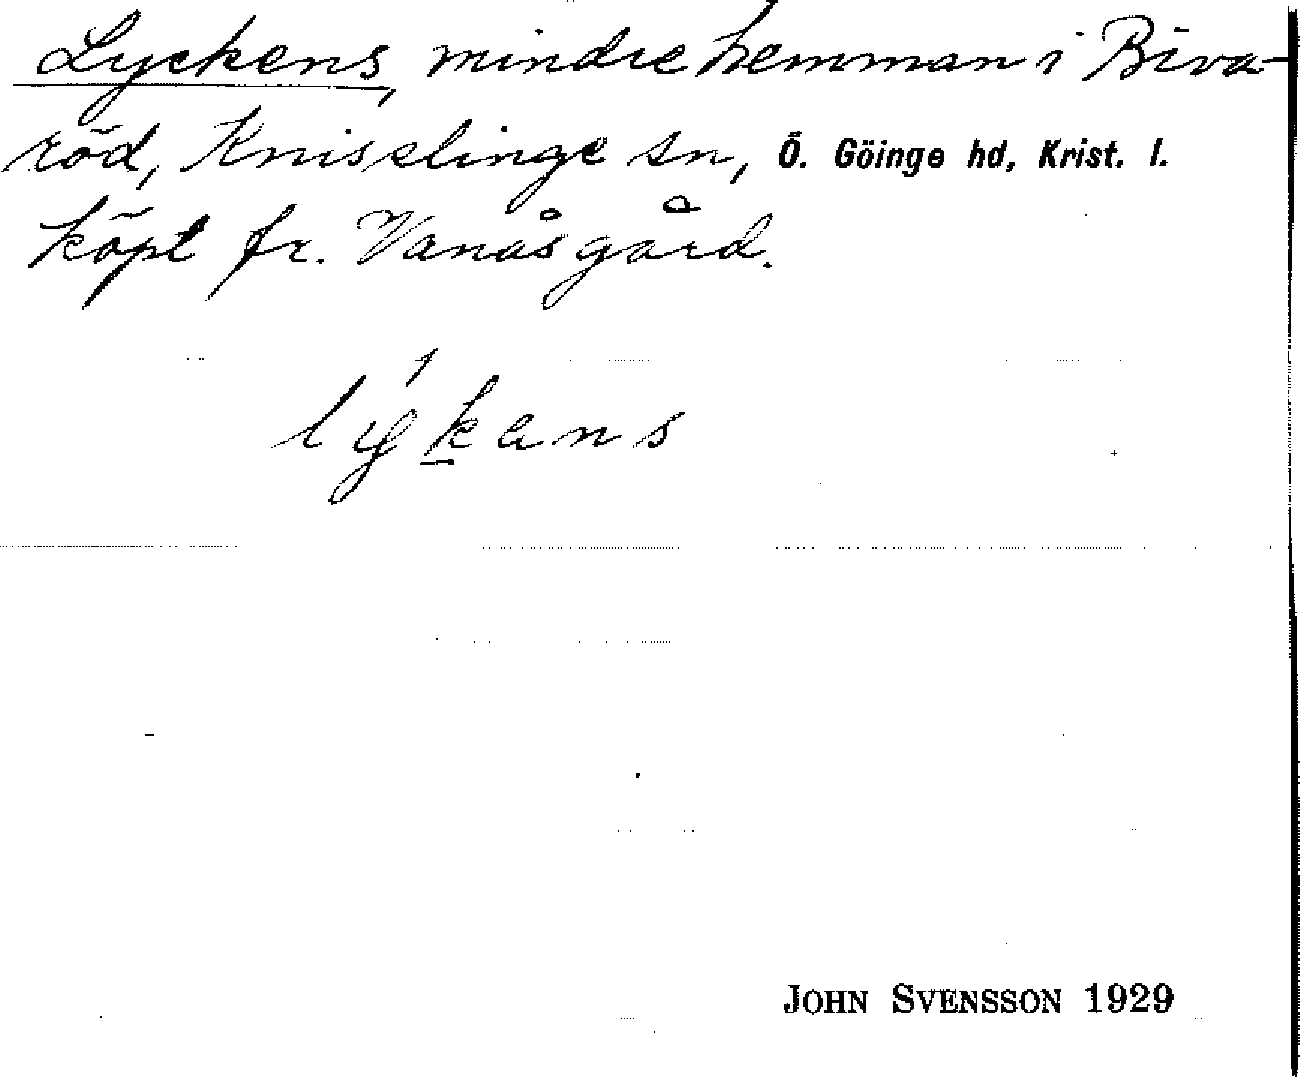 Lyckens, mindre hemman i Biva-
röd, Knislinge sn, Ö. Göinge hd, Krist. l.
köpt fr. Vanås gård.
lýkans
JOHN SVENSSON 1929